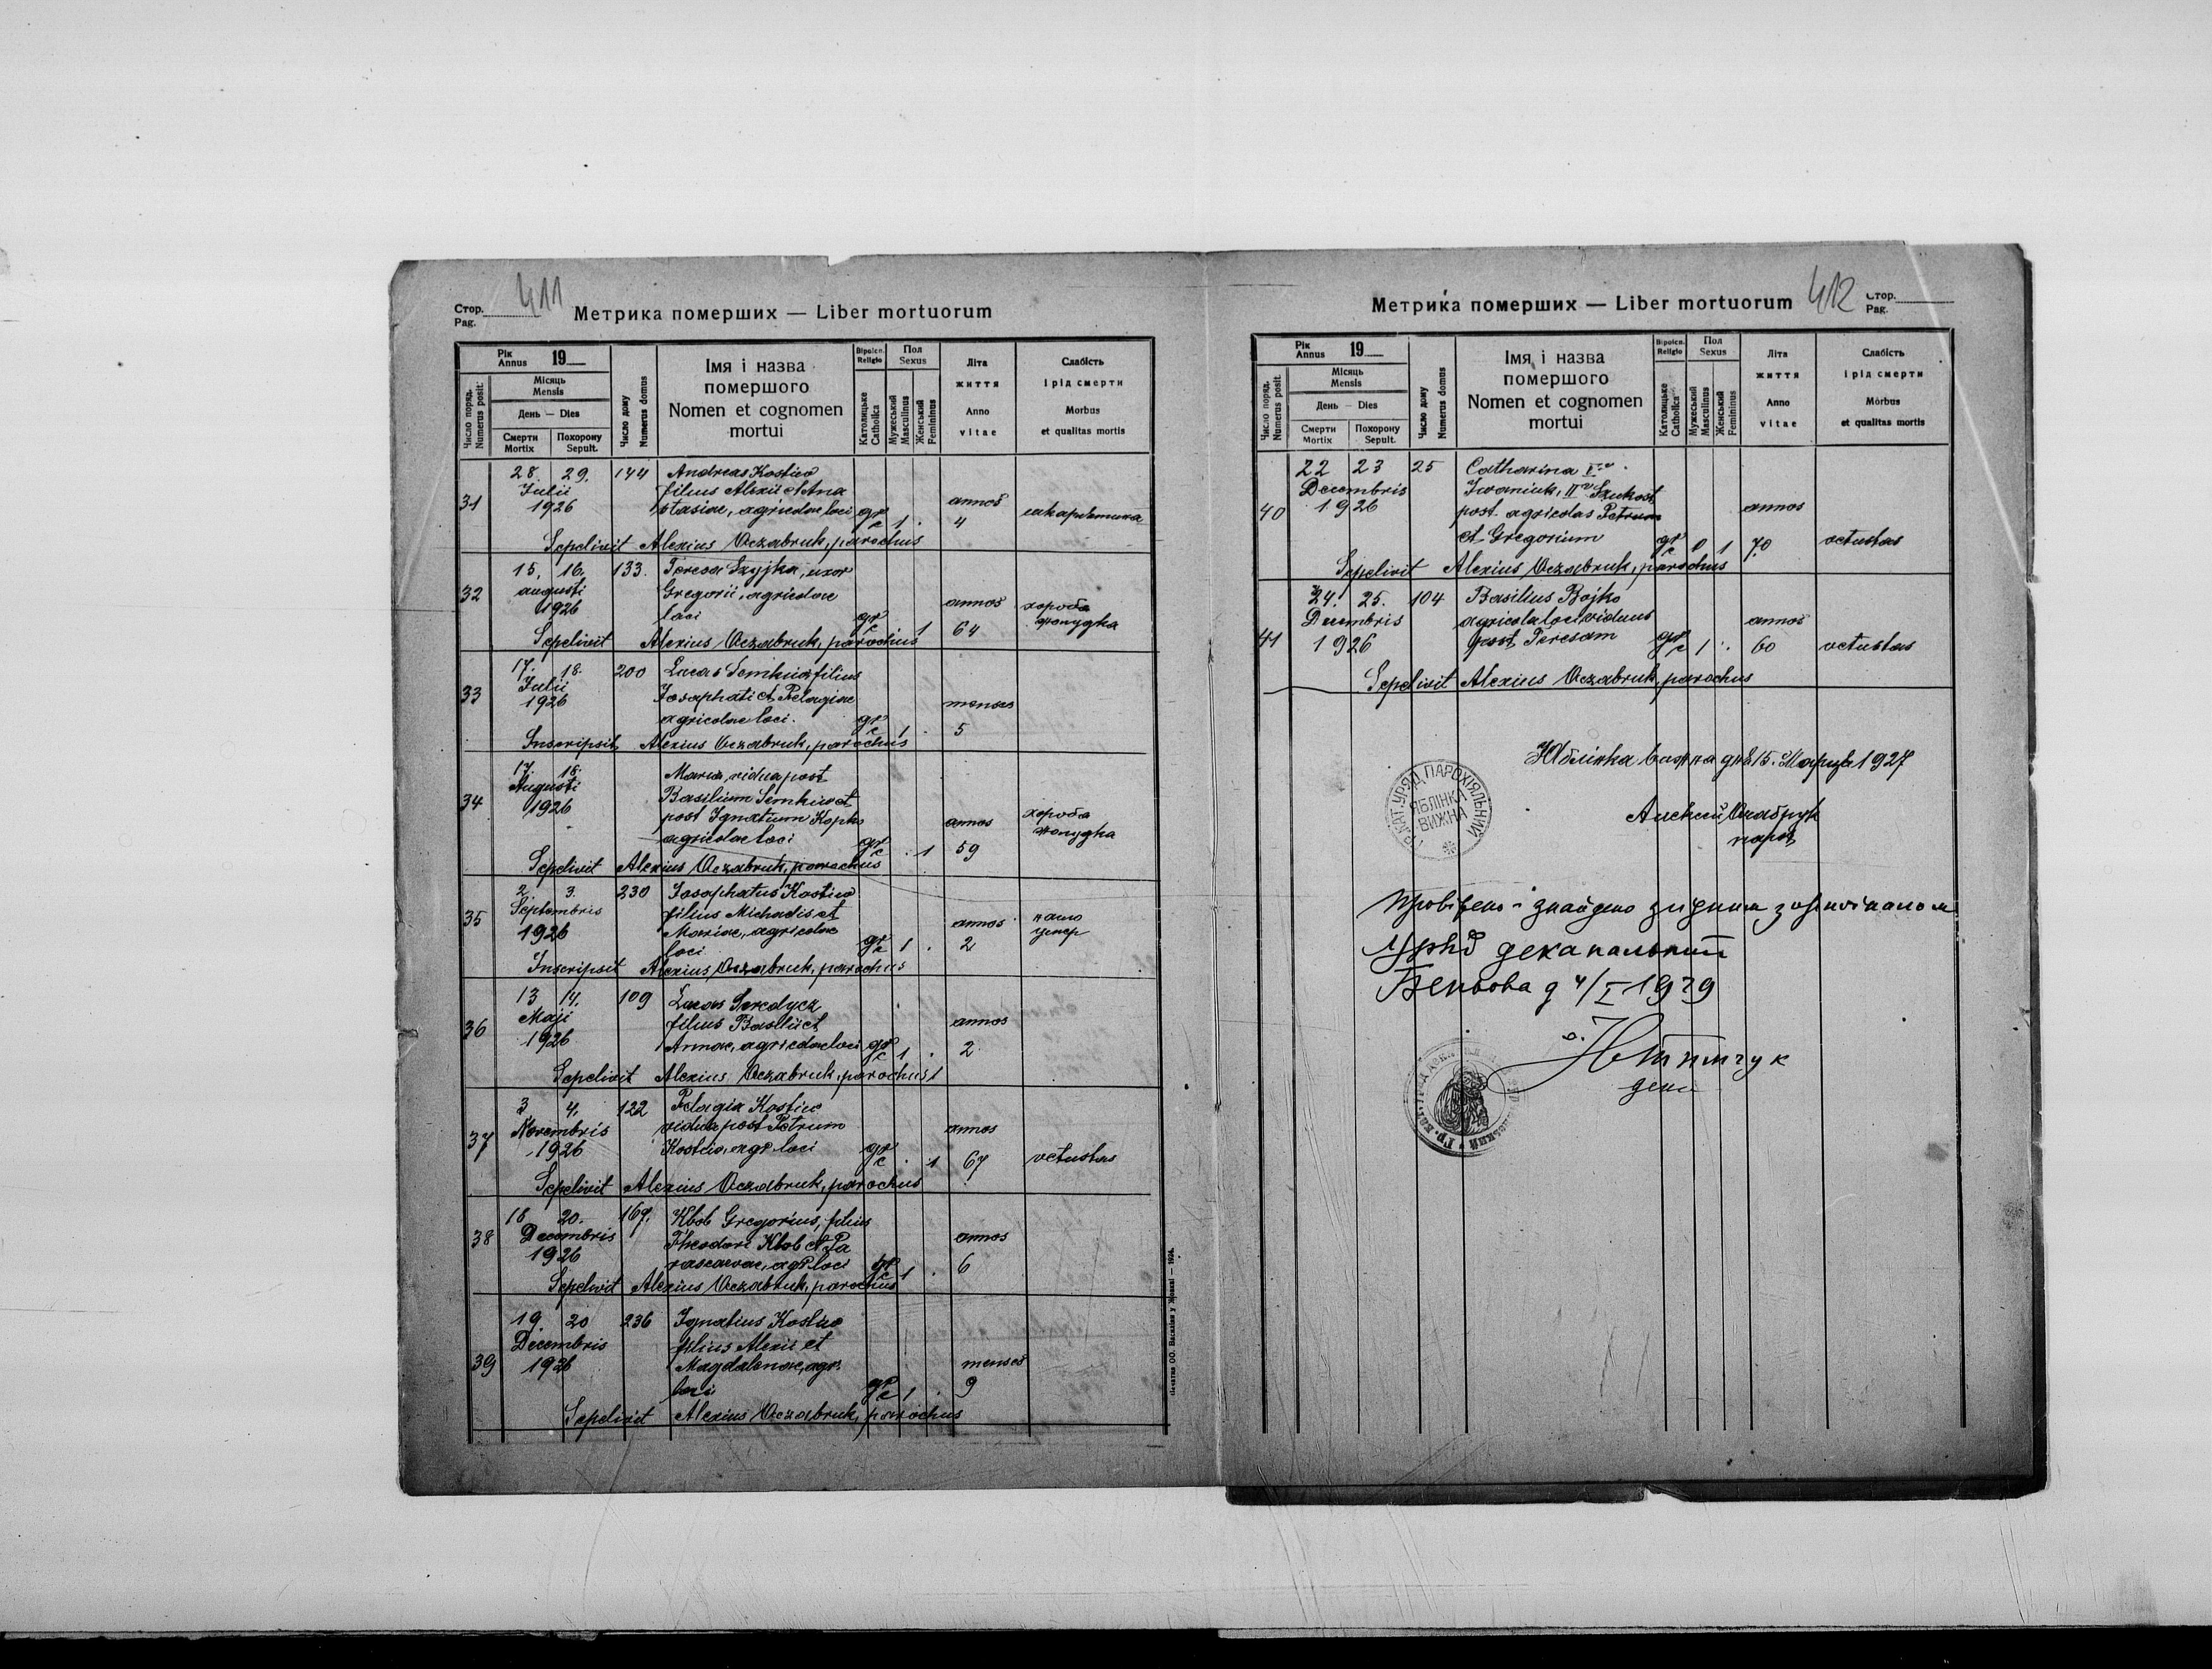 Стор. 411
Pag.
Метрика померших — Liber mortuorum
Рік 19
Annus
Місяць
Mensis
День — Dies
Смерти Похорону
Mortix Sepult.
Число поряд.
Numerus posit.
Число дому
Numerus domus
Імя і назва
помершого
Nomen et cognomen
mortui
Віроісп.
Religio
Католицьке
Catholica
Пол
Sexus
Мужеський
Masculinus
Женський
Femininus
Літа
життя
Anno
vitae
Слабість
і рід смерти
Morbus
et qualitas mortis
28. 29. 144 Andreas Kostiw
Julii filius Alexii et Ana
31 1926 stasiae, agricolae loci gr c 1 . annos 4 шкарлятина
Sepelivit Alexius Oczabruk, parochus
15. 16. 133. Teresa Szyjka, uxor
32 augusti Gregorii, agricolae
1926 loci gr c 1 annos 64 хороба
жолудка
Sepelivit Alexius Oczabruk, parochus
17. 18. 200 Lucas Semkiw filius
33 Julii Josaphati et Pelagiae
1926 agricolae loci. gr c 1 . menses 5
Inscripsit Alexius Oczabruk, parochus
17. 18. Maria, vidua post
Augusti Basilium Semkiw et
34 1926 post Ignatium Kopko
agricolae loci gr c . 1 annos 59 хороба
жолудка
Sepelivit Alexius Oczabruk, parochus
2. 3. 230 Josaphatus Kostiw
35 Septembris filius Michaelis et
1926 Mariae, agricolae
loci gr c 1 . annos 2
Inscripsit Alexius Oczabruk, parochus
13 14. 109 Lucas Seredycz
36 Maji filius Basilii et
1926 Annae, agricolae loci gr c 1 . annos 2
Sepelivit Alexius Oczabruk, parochus
3 4. 122 Pelagia Kostiw
37 Novembris vidua post Petrum
1926 Kostiw, agr. loci gr c . 1 annos 67 vetustas
Sepelivit Alexius Oczabruk, parochus
18 20. 167. Klob Gregorius, filius
38 Decembris Theodori Klob et Pa
1926 rascevae, agr. loci gr c 1 . annos 6
Sepelivit Alexius Oczabruk, parochus
19. 20 236 Ignatius Kostiw
Decembris filius Alexii et
39 1926 Magdalenae, agr.
loci gr c 1 . menses 9
Sepelivit Alexius Oczabruk, parochus
Печатня ОО. Василіян у Жовкві — 1924.
Метрика померших — Liber mortuorum
412 Стор.
Pag.
Рік 19
Annus
Місяць
Mensis
День — Dies
Смерти Похорону
Mortix Sepult.
Число поряд.
Numerus posit.
Число дому
Numerus domus
Імя і назва
помершого
Nomen et cognomen
mortui
Віроісп.
Religio
Католицьке
Catholica
Пол
Sexus
Мужеський
Masculinus
Женський
Femininus
Літа
життя
Anno
vitae
Слабість
і рід смерти
Morbus
et qualitas mortis
22 23 25 Catharina I v.
Decembris Iwaniuk, II v.
40 1926 post agricolas Petrum
et Gregorium gr c 0 1 annos 70 vetustas
Sepelivit Alexius Oczabruk, parochus
24. 25. 104 Basilius Bojko
Decembris agricola loci viduus
41 1926 post Teresam gr c 1 . annos 60 vetustas
Sepelivit Alexius Oczabruk, parochus
Яблінка вижна дня 15. Марця 1927
Алексій Очабрук
парох
ГР. КАТ. УРЯД ПАРОХІЯЛЬНИЙ
ЯБЛІНКА
ВИЖНА
Провірено і знайдено згідним з оригіналом
Уряд деканальний
Беньова д 4/I 1929
о.
декан